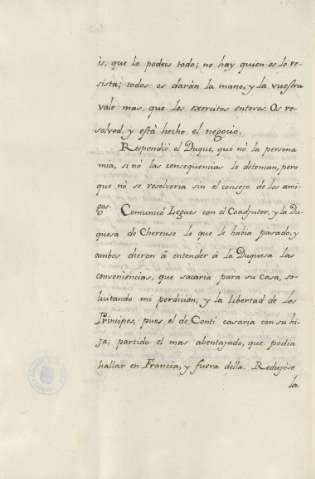 is, que lo podeis todo; no hay quien os lo re-
sista; todos os darán la mano, y la vuestra
vale mas, que los exercitos enteros. Os re-
solved, y está hecho el negocio.
Respondió el Duque, que no la persona
mia, si no las conseqüencias le detenian, pero
que no se resolveria sin el consejo de los ami-
gos. Comunicó Legues con el Coadjutor, y la Du-
quesa de Cheruse lo que le habia pasado, y
ambos dieron á entender á la Duquesa las
conveniencias, que sacaria para su Casa, so-
licitando mi perdicion, y la libertad de los
Principes, pues el de Conti casaria con su hi-
ja; partido el mas abentajado, que podia
hallar en Francia, y fuera della. Redujose
la